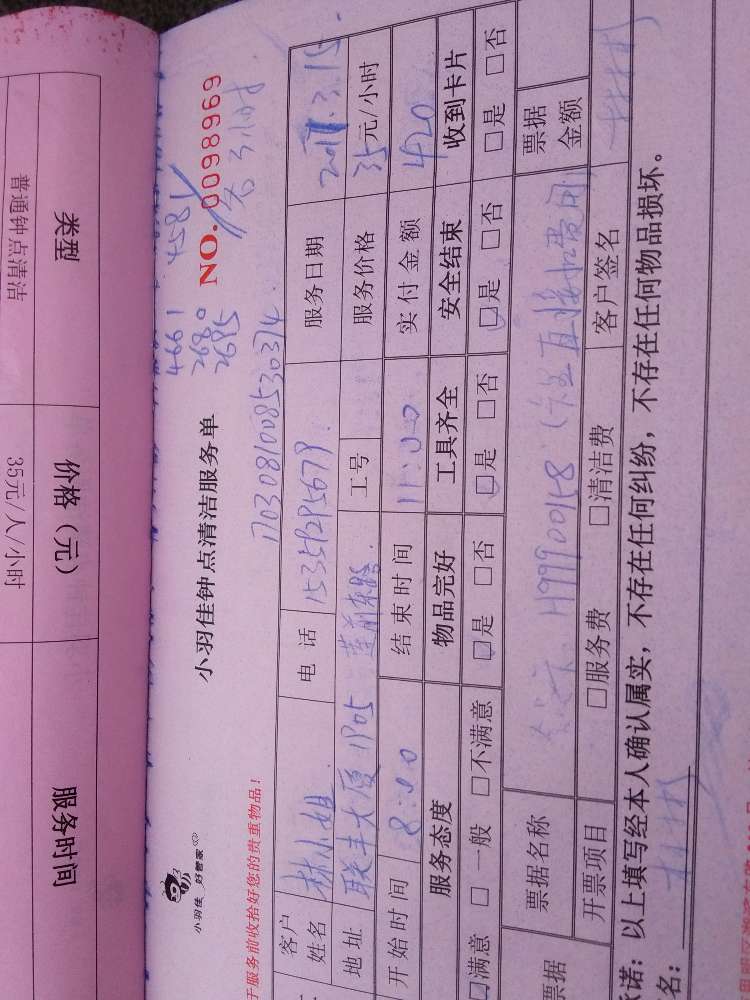 类型
价格（元）
服务时间
普通钟点清洁
35元/人/小时
小羽佳 好管家
小羽佳钟点清洁服务单
NO.0098969
4661 4581
2680
2685
3小时
170308100853034
于服务前收拾好您的贵重物品！
客户姓名 林小姐 电话 15359295679 服务日期 2017.3.15
地址 联丰大厦1905 莲前东路 工号 服务价格 35元/小时
开始时间 8:00 结束时间 11:00 实付金额 420
服务态度 物品完好 工具齐全 安全结束 收到卡片
□满意 □一般 □不满意 □是 □否 □是 □否 □是 □否 □是 □否
票据
票据名称 票据金额
开票项目 □服务费 □清洁费 客户签名
诺：以上填写经本人确认属实，不存在任何纠纷，不存在任何物品损坏。
名：